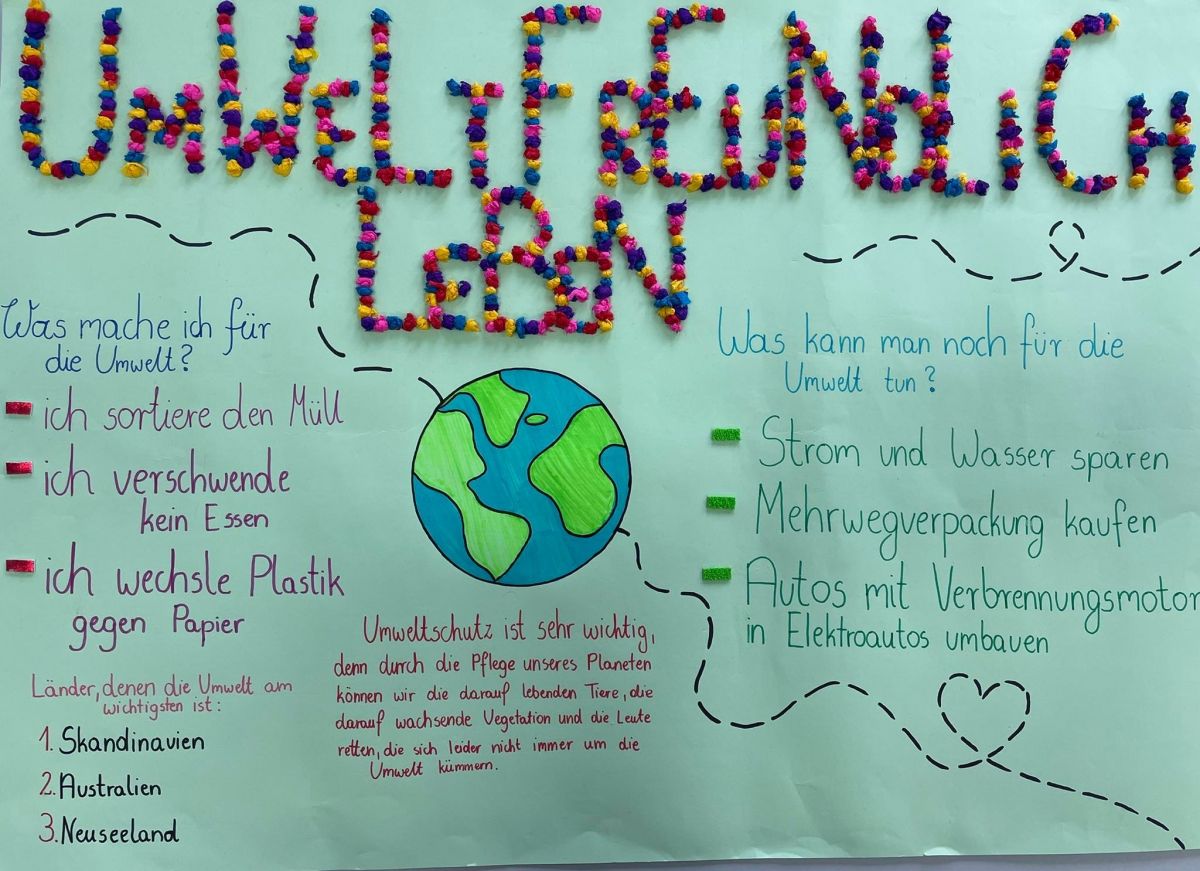 UMWELTFREUNDLICH
LEBEN
Was mache ich für
die Umwelt?
ich sortiere den Müll
ich verschwende
kein Essen
ich wechsle Plastik
gegen Papier
Länder, denen die Umwelt am
wichtigsten ist:
1. Skandinavien
2. Australien
3. Neuseeland
Umweltschutz ist sehr wichtig,
denn durch die Pflege unseres Planeten
können wir die darauf lebenden Tiere, die
darauf wachsende Vegetation und die Leute
retten, die sich leider nicht immer um die
Umwelt kümmern.
Was kann man noch für die
Umwelt tun?
Strom und Wasser sparen
Mehrwegverpackung kaufen
Autos mit Verbrennungsmotor
in Elektroautos umbauen